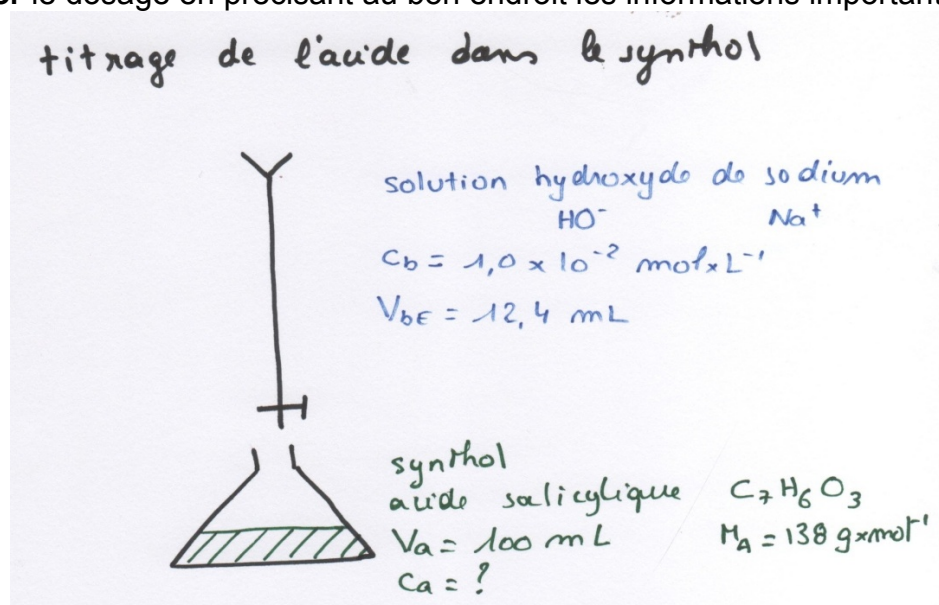 le dosage en précisant au bon endroit les informations important
titrage de l'acide dans le synthol
solution hydroxyde de sodium
HO⁻ Na⁺
Cb = 1,0 × 10⁻² mol×L⁻¹
VbE = 12,4 mL
synthol
acide salicylique C₇H₆O₃
Va = 100 mL MA = 138 g×mol⁻¹
Ca = ?